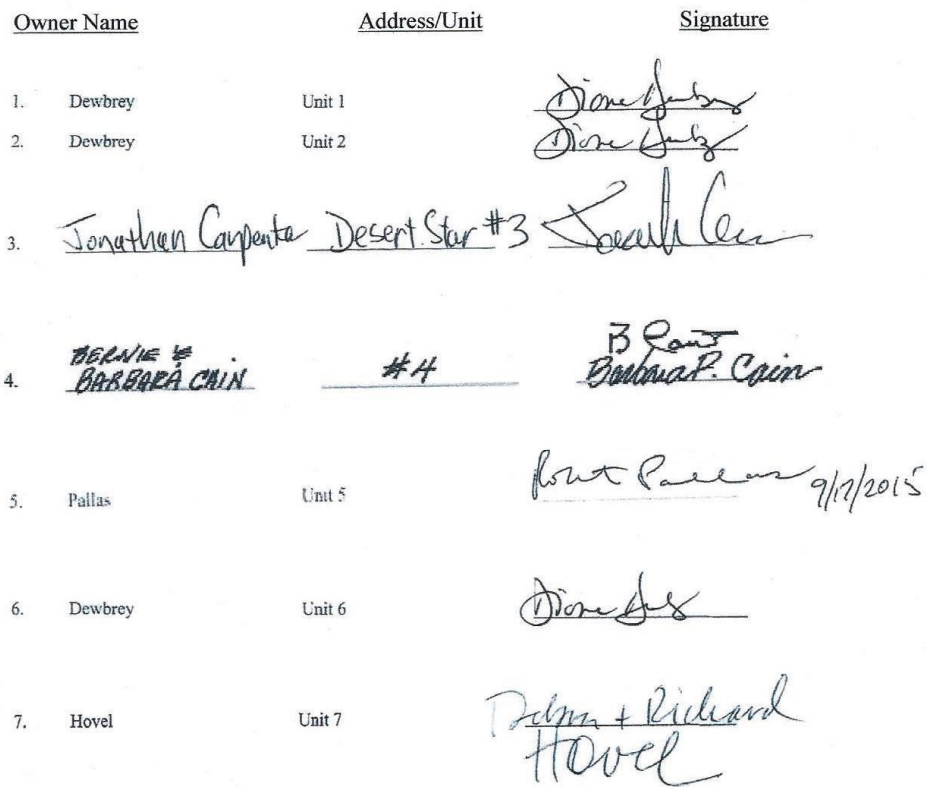 Owner Name Address/Unit Signature
1. Dewbrey Unit 1 Diane Dewbrey
2. Dewbrey Unit 2 Diane
3. Jonathan Carpenter Desert Star #3
4. BERNIE & BARBARA CAIN #4 B Cain
Barbara P. Cain
5. Pallas Unit 5 Robert Pallas 9/17/2015
6. Dewbrey Unit 6 Diane
7. Hovel Unit 7 + Richard
Hovel